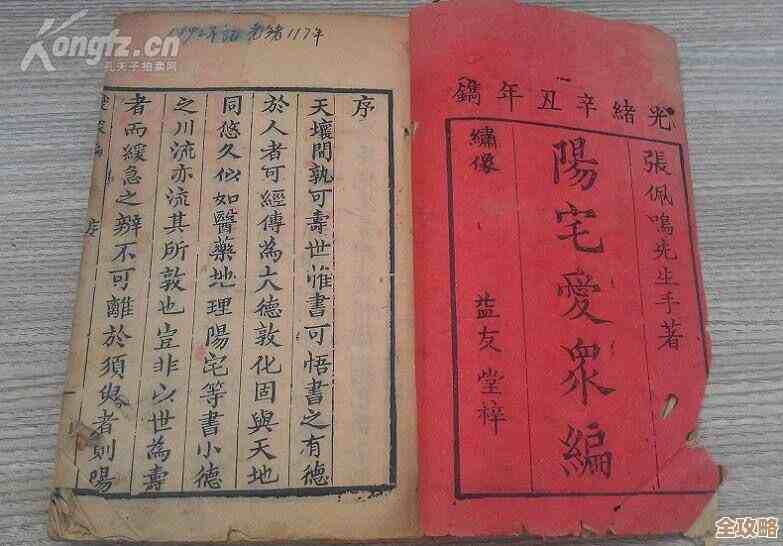 Kongfz.cn
孔夫子拍卖网
光緒辛丑年鐫
張佩鳴先生手著
陽宅愛眾編
繡像
益友堂梓
序
天壤間孰可壽世惟書可悟書之有德
於人者可經傳為大德敦化固與天地
同悠久似如醫藥地理陽宅等書小德
之川流亦流其所敦也豈非以世為壽
者而緩急之辦不可離於須臾者則陽
序
全攻略